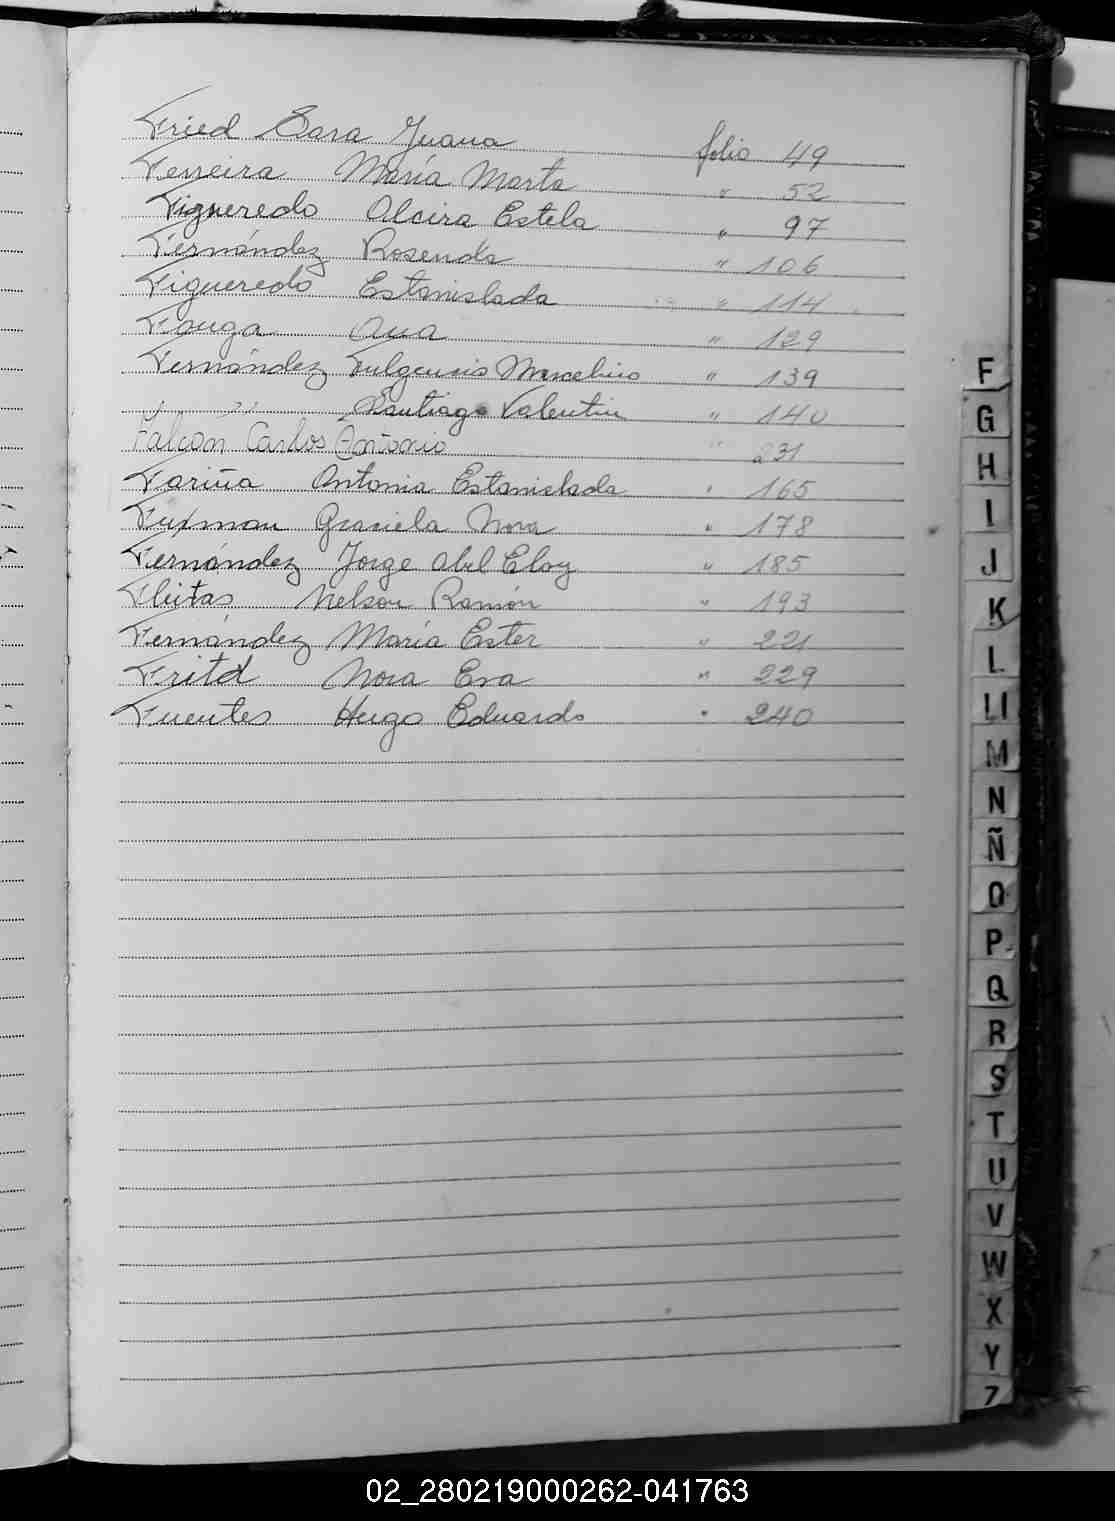 Fried Sara Juana folio 49
Ferreira María Marta " 52
Figueredo Alcira Estela " 97
Fernández Rosenda " 106
Figueredo Estanislada " 114
Fouga Ana " 129
Fernández Fulgencio Marcelino " 139
" " Santiago Valentin " 140
Falcon Carlos Antonio " 231
Fariña Antonia Estanislada " 165
Fuxman Graciela Nora " 178
Fernández Jorge Abel Eloy " 185
Fleitas Nelson Ramón " 193
Fernández María Ester " 221
Fritd Nora Eva " 229
Fuentes Hugo Eduardo " 240
F
G
H
I
J
K
L
Ll
M
N
Ñ
O
P
Q
R
S
T
U
V
W
X
Y
Z
02_280219000262-041763